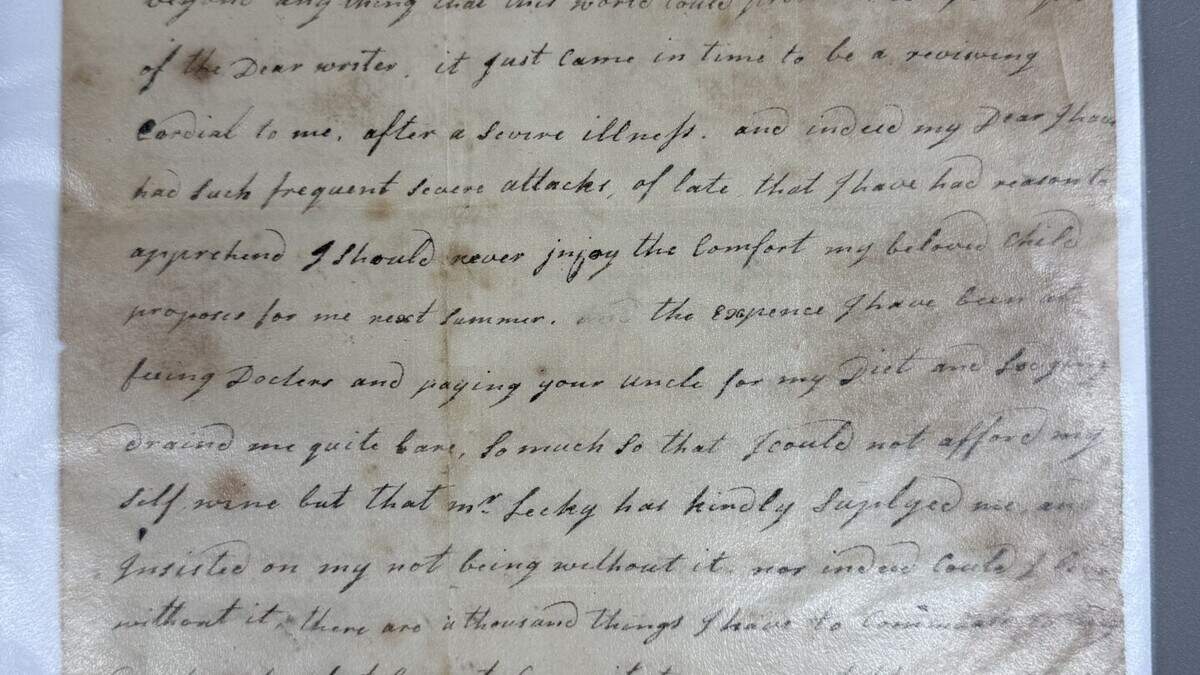 beyond any thing that this world could
of the Dear writer. it Just came in time to be a reviving
Cordial to me, after a Severe illness. and indeed my Dear I have
had Such frequent Severe attacks, of late that I have had reason to
apprehend I Should never injoy the Comfort my beloved Child
proposes for me next Summer. and the Expence I have been at
feeing Docters and paying your uncle for my Diet and
draind me quite bare, So much So that I could not afford my
self wine but that Mr. Lecky has kindly Suplyed me, and
Insisted on my not being without it. nor indeed Could I
without it, there are a thousand things I have to